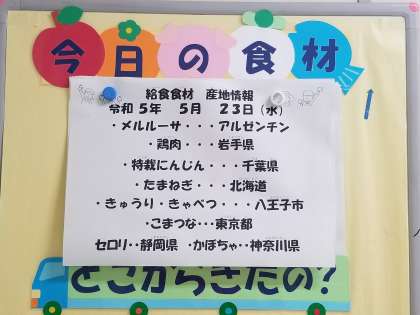 今日の食材
給食食材 産地情報
令和5年 5月 23日(水)
・メルルーサ・・・アルゼンチン
・鶏肉・・・岩手県
・特栽にんじん・・・千葉県
・たまねぎ・・・北海道
・きゅうり・きゃべつ・・・八王子市
・こまつな・・・東京都
セロリ・・静岡県 ・かぼちゃ・・神奈川県
どこからきたの?